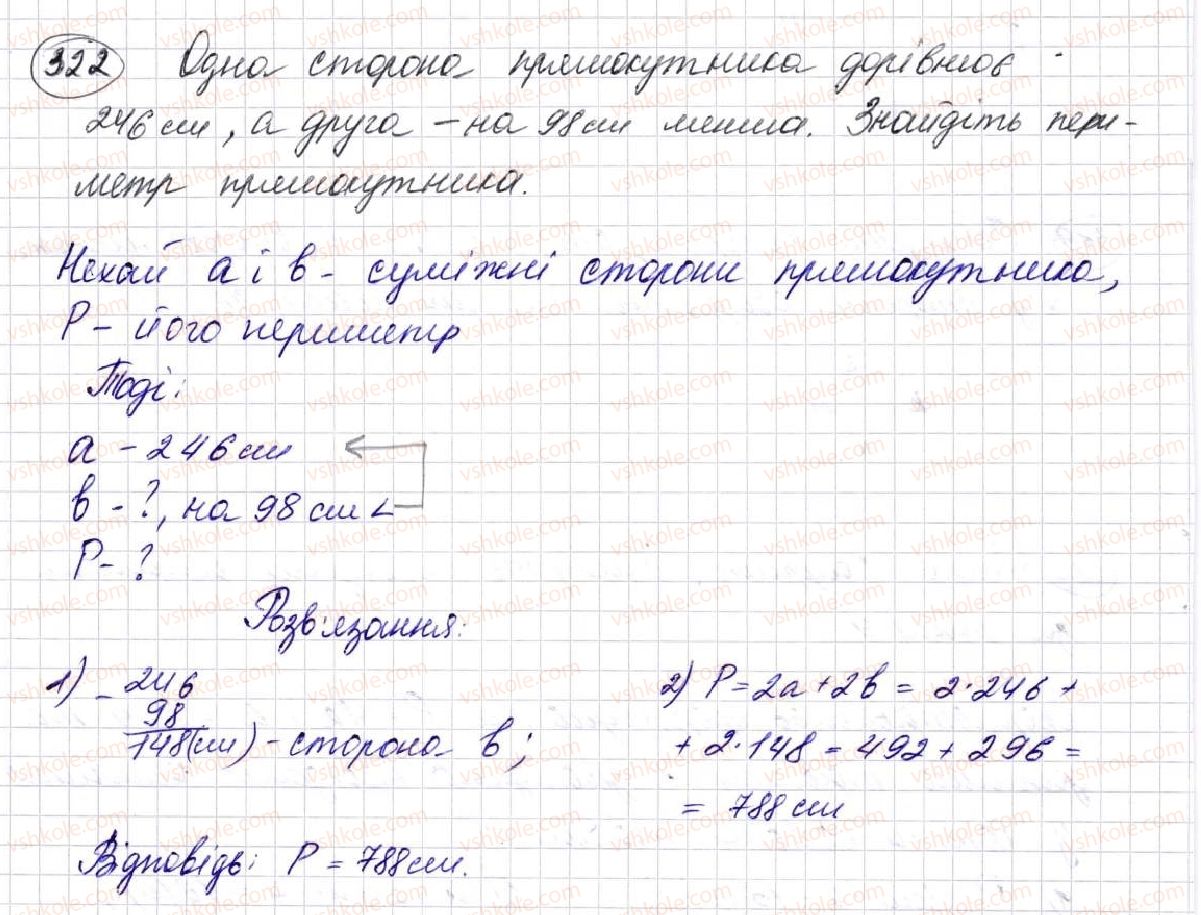 322 Одна сторона прямокутника дорівнює
246 см, а друга – на 98 см менша. Знайдіть пери-
метр прямокутника.
Нехай a і b - суміжні сторони прямокутника,
P – його периметр
Тоді:
a – 246 см
b - ?, на 98 см <
P - ?
Розв'язання:
1) - 246
98
148 (см) - сторона b;
2) P = 2a + 2b = 2·246 +
+ 2·148 = 492 + 296 =
= 788 см
Відповідь: P = 788 см.